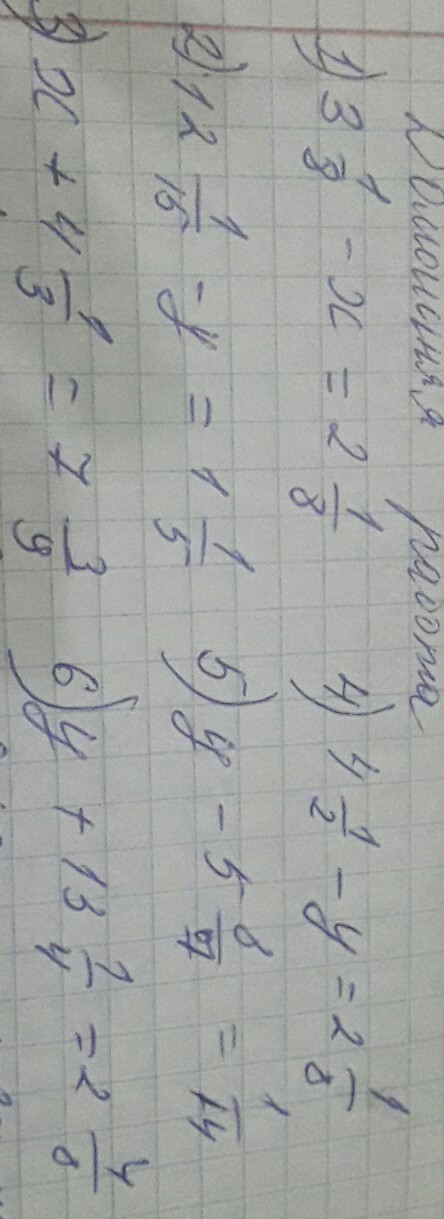 Домашняя работа
1) 3 1/8 - x = 2 1/8 4) 4 1/2 - y = 2 1/8
2) 12 1/15 - y = 1 1/5 5) y - 5 8/9 = 1/14
3) x + 4 1/3 = 7 7/9 6) y + 13 7/4 = 2 4/8